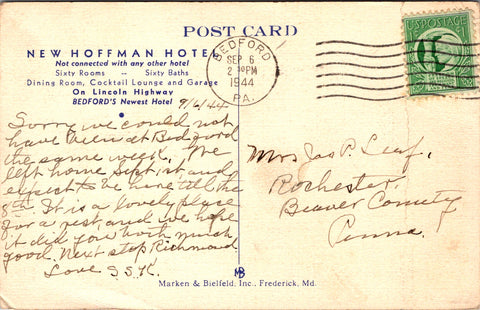 POST CARD
NEW HOFFMAN HOTEL
Not connected with any other hotel
Sixty Rooms -- Sixty Baths
Dining Room, Cocktail Lounge and Garage
On Lincoln Highway
BEDFORD'S Newest Hotel
BEDFORD
SEP 6
2 PM
1944
PA.
U.S. POSTAGE
9/6/44
Sorry we could not
have been at Bedford
the same week. We
left home Sept 1st, and
expect to be here till the
8th. It is a lovely place
for a rest and we hope
it did you both much
good. Next stop Richmond.
Love S.S.K.
Mrs Jas P. Leaf,
Rochester,
Beaver County
Penna.
MB
Marken & Bielfeld, Inc., Frederick, Md.